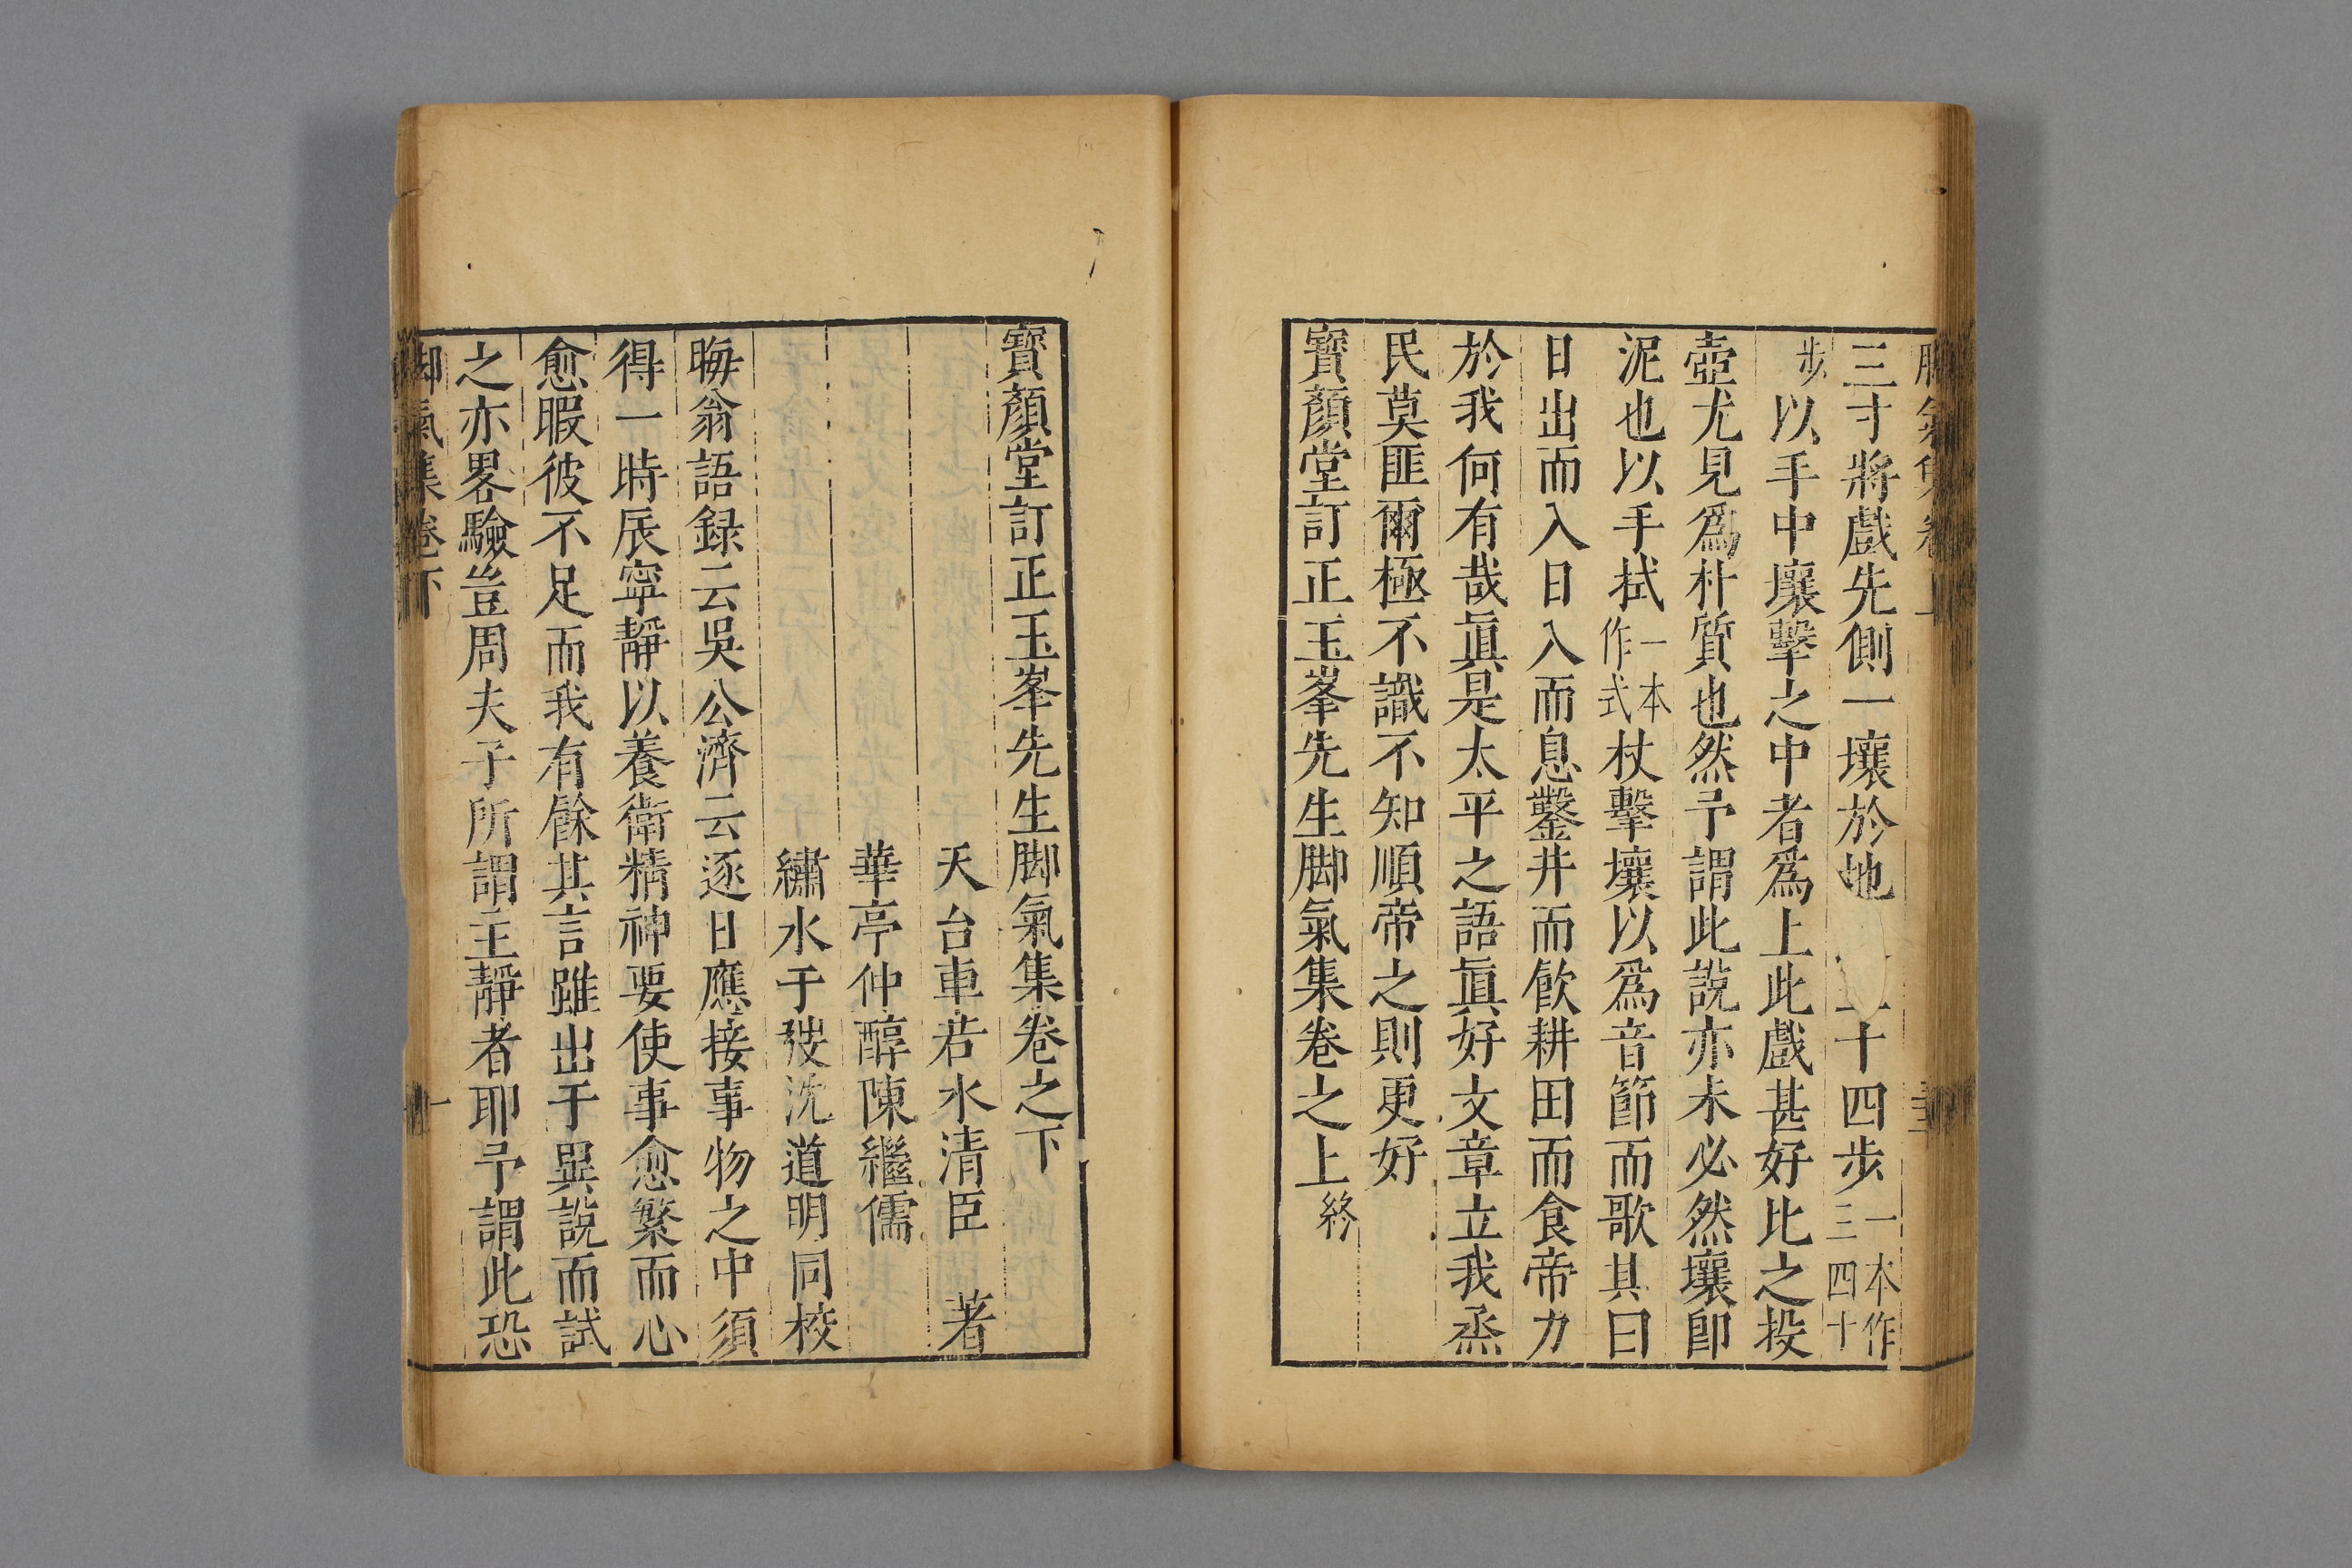 三寸將戲先側一壤於地十四步一本作三四十
步以手中壤擊之中者爲上此戲甚好比之投
壺尤見爲朴質也然予謂此說亦未必然壤卽
泥也以手拭一本作式杖擊壤以爲音節而歌其曰
日出而入日入而息鑿井而飮耕田而食帝力
於我何有哉眞是太平之語眞好文章立我烝
民莫匪爾極不識不知順帝之則更好
寳顏堂訂正玉峯先生脚氣集卷之上終
寳顏堂訂正玉峯先生脚氣集卷之下
天台車若水清臣 著
華亭仲醇陳繼儒
繡水于㢮沈道明同校
晦翁語録云吳公濟云逐日應接事物之中須
得一時辰寧靜以養衛精神要使事愈繁而心
愈暇彼不足而我有餘其言雖出于異說而試
之亦畧驗豈周夫子所謂主靜者耶予謂此恐
脚氣集卷下 一